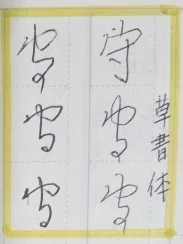 草書体
守
守
守
守
守
守